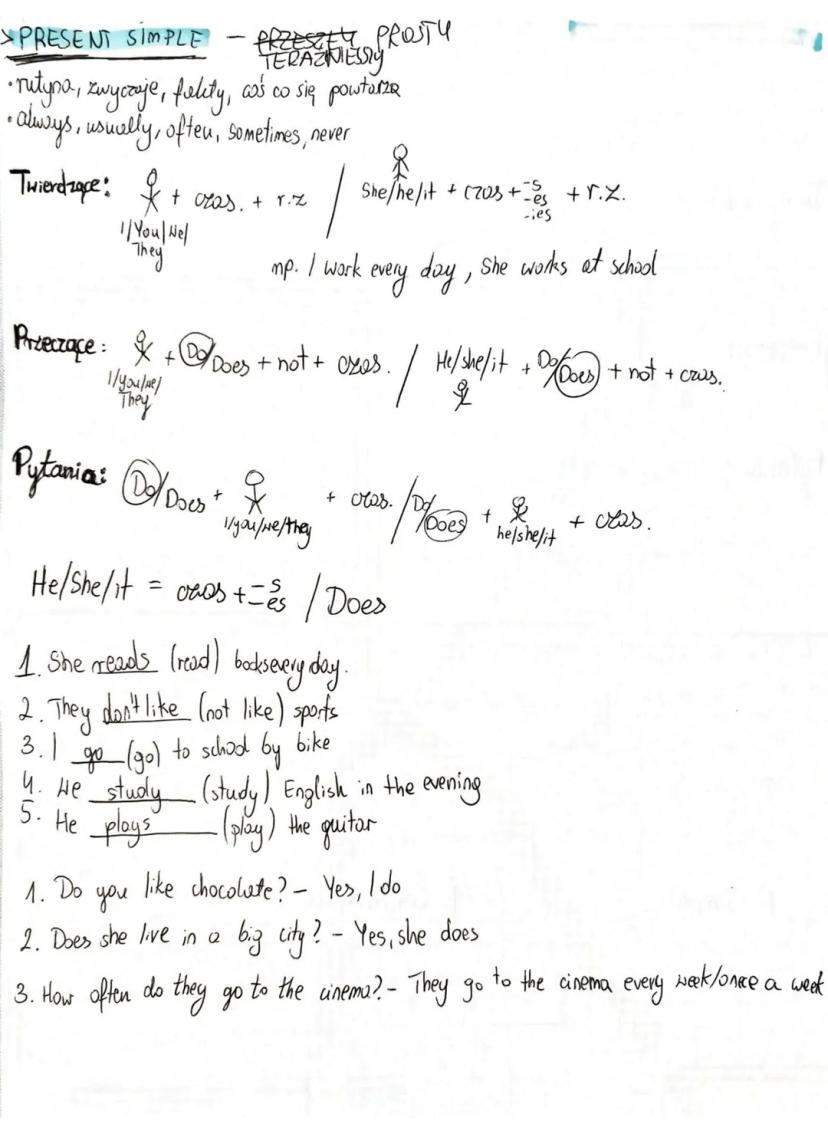 > PRESENT SIMPLE – PRZESZŁY PROSTY
TERAŹNIESSY
• rutyna, zwyczaje, fakty, coś co się powtarza
• always, usually, often, sometimes, never
Twierdzące: + czas. + r.z / She/he/it + czas + -s -es -ies + r.z.
I/You/We/
They
np. I work every day, She works at school
Przeczące: + Do/Does + not + czas. / He/she/it + Do/Does + not + czas.
I/you/we/
They
Pytania: Do/Does + + czas. / Do/Does + + czas.
I/you/we/they he/she/it
He/She/it = czas + -s -es / Does
1. She reads (read) books every day.
2. They don't like (not like) sports
3. I go (go) to school by bike
4. He study (study) English in the evening
5. He plays (play) the guitar
1. Do you like chocolate? – Yes, I do
2. Does she live in a big city? – Yes, she does
3. How often do they go to the cinema? – They go to the cinema every week/once a week